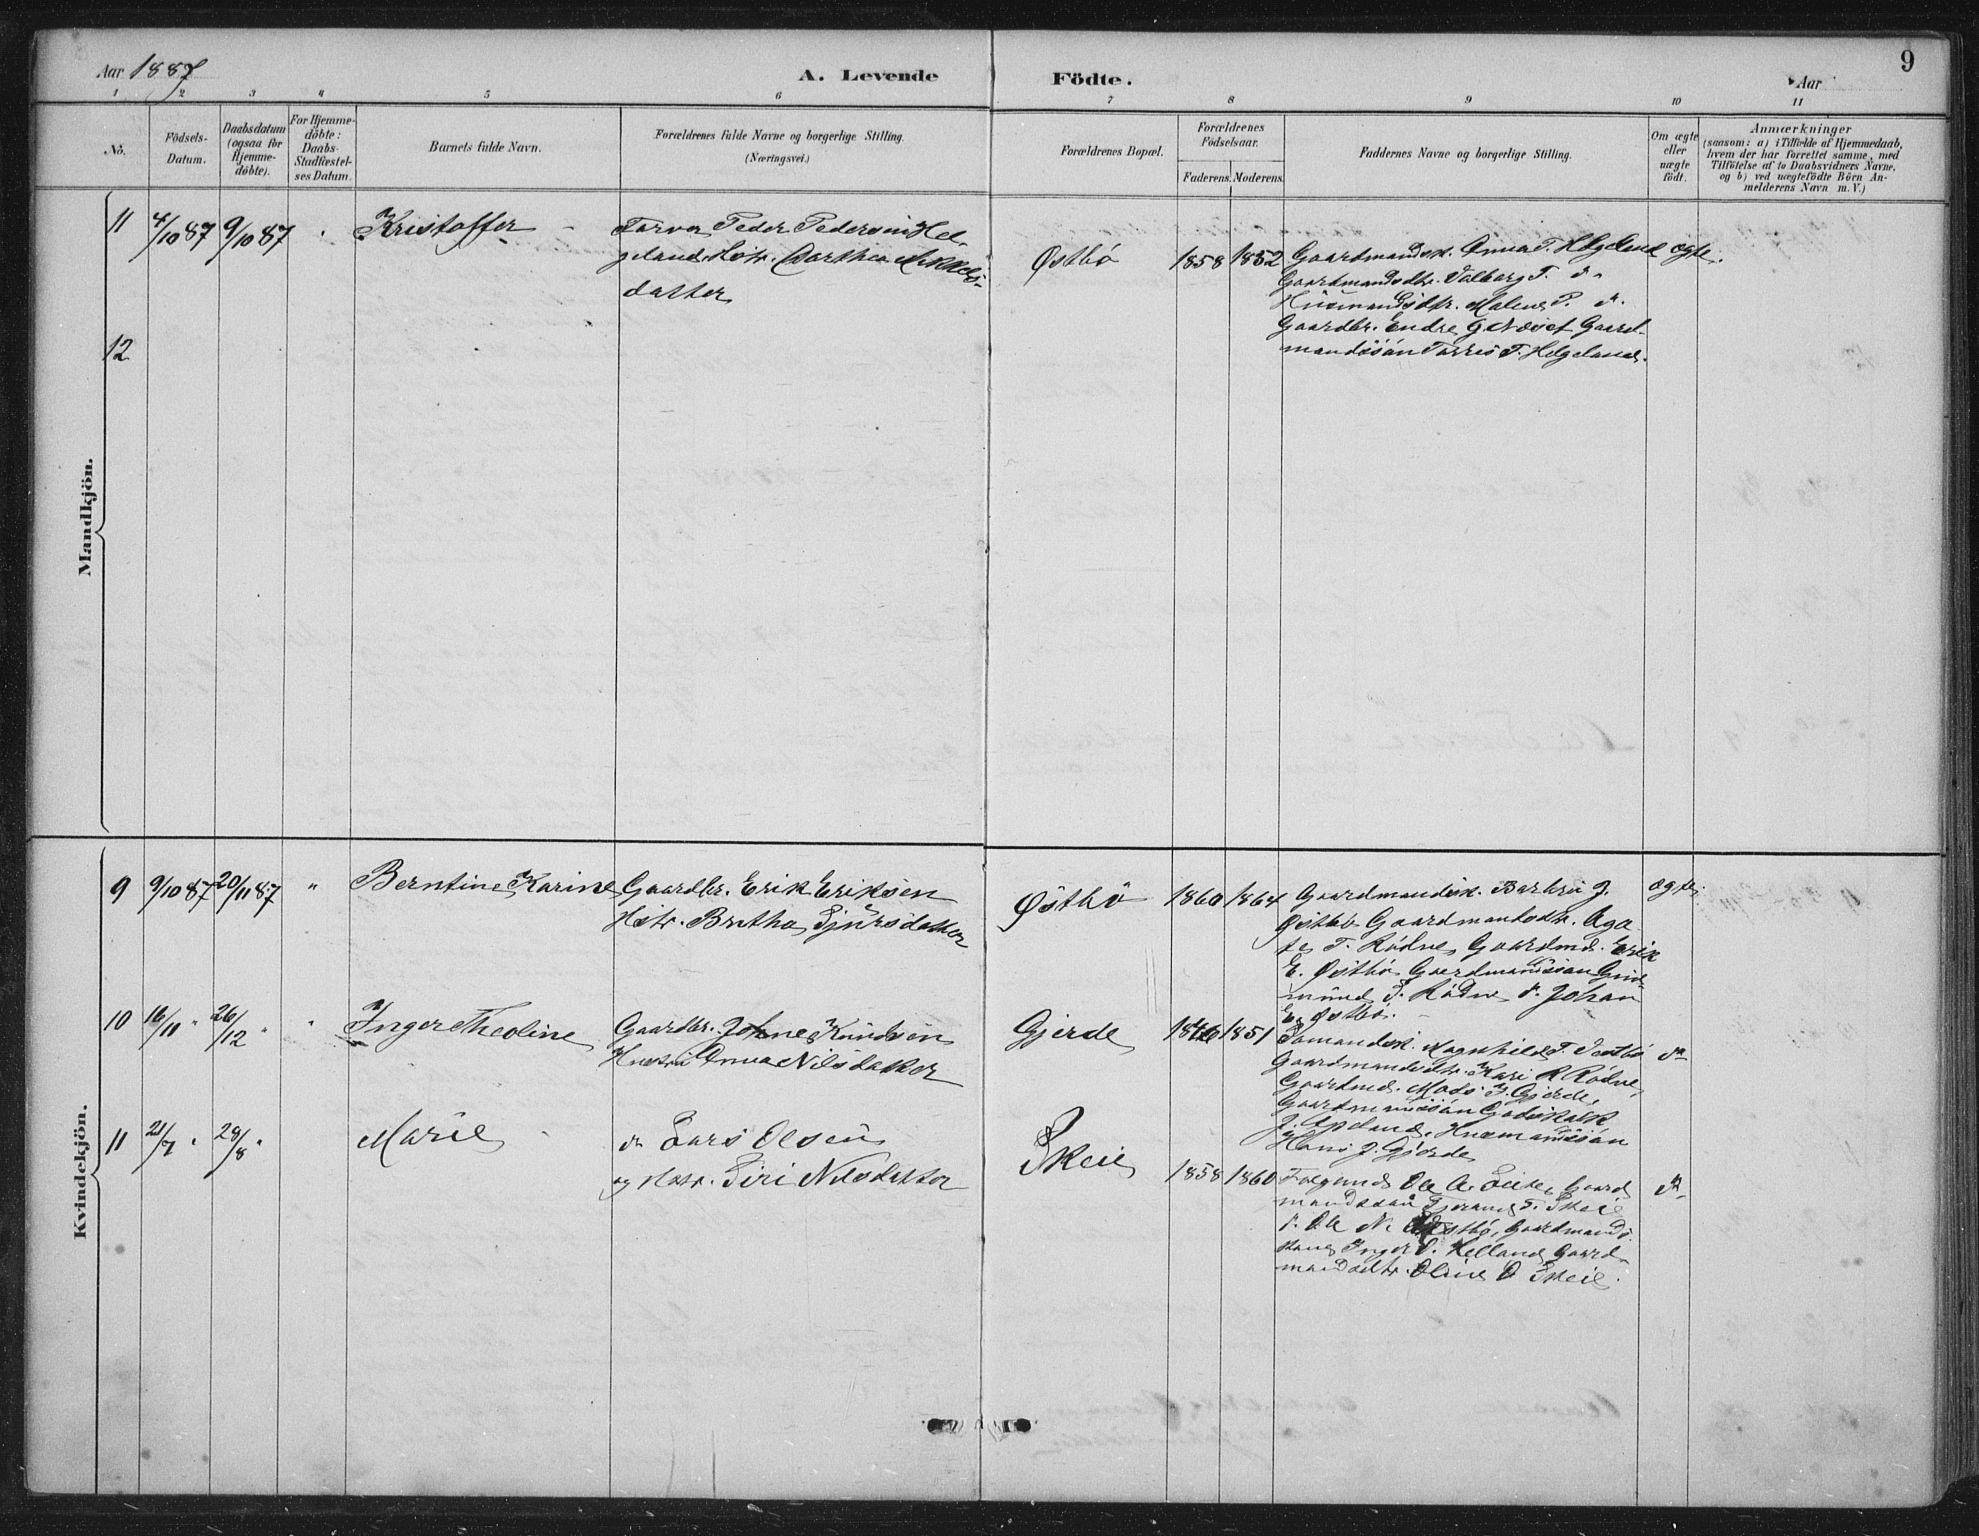 Aar 1887
A. Levende
Födte.
Aar
9
1 2 3 4 5 6 7 8 9 10 11
No.
Födsels-
Datum.
Daabsdatum
(ogsaa for
Hjemme-
döbte).
For Hjemme-
döbte:
Daabs-
Stadfæstel-
ses Datum.
Barnets fulde Navn.
Forældrenes fulde Navne og borgerlige Stilling.
(Næringsvei.)
Forældrenes Bopæl.
Forældrenes
Födselsaar.
Faderens. Moderens.
Faddernes Navne og borgerlige Stilling.
Om ægte
eller
uægte
födt.
Anmærkninger
(saasom: a) i Tilfælde af Hjemmedaab,
hvem der har forrettet samme, med
Tilföielse af to Daabsvidners Navne,
og b) ved uægtefödte Börn An-
melderens Navn m. V.)
Mandkjön.
11 4/10 87 9/10 87 " Kristoffer
Farver Peder Pedersen Hel-
geland, Hstr. Dorthea Mikkels-
datter
Østbö 1858 1852
Gaardmandsk. Anna T. Helgeland
Gaardmandsdtr. Valborg T. do
Husmandsdtr. Malene P. do
Gaardbr. Endre G Næset Gaard-
mandssön Torres T. Helgeland.
ægte.
12
Kvindekjön.
9 9/10 87 20/11 87 " Berntine Karine
Gaardbr. Erik Eriksen
Hstr. Britha Sjursdatter
Østbö 1860 1864
Gaardmandsk. Barbru J.
Østbö Gaardmandsdtr. Aga
te T. Rödne, Gaardmd. Erik
E. Østbö Gaardmandssön Gud-
mund T. Rödne do Johan
E. Østbö.
ægte.
10 16/11 " 26/12 " " Inger Theoline
Gaardbr. Johne Knudsen
Hustru Anna Nilsdatter
Gjerde 1846 1851
Magnhild T. Østbö
Gaardmandsdtr. Kari R Rödne,
Gaardmd. Mads J. Gjerde,
Gaardmandssön Godskalk
J. Apeland, Husmandssön
Hans J. Gjerde
do
11 21/7 " 28/8 " Marie
do Lars Olsen
og Hstr. Siri Nilsdatter
Skeie 1858 1860
Ole A. Leite, Gaard
mandssön Tjerand T. Skeie
do Ole N. Østbö, Gaardmands
kone Inger S. Helland, Gaard-
mandsdtr. Oline O Skeie.
do